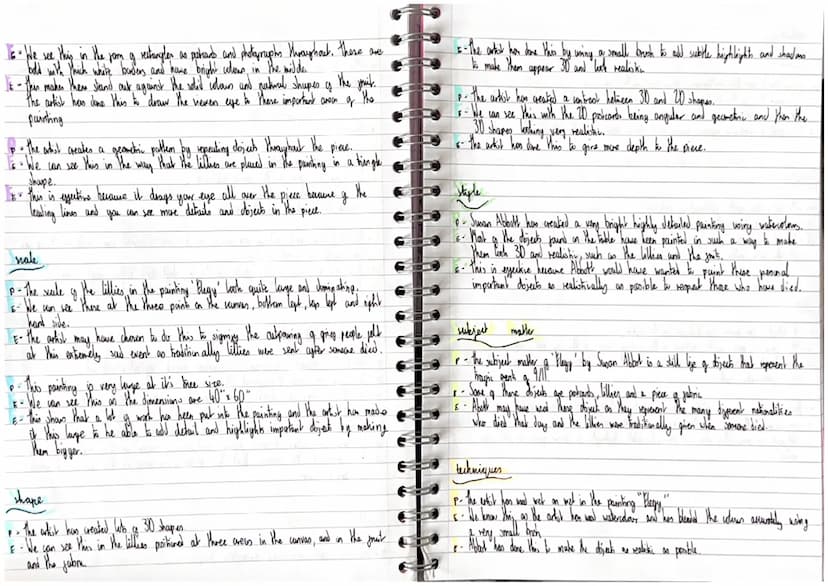 E - We see this in the form of rectangles as postcards and photographs throughout. These are
bold with thick white borders and have bright colours in the middle.
E - This makes them stand out against the solid colours and natural shapes of the fruit.
The artist has done this to draw the viewers eye to these important areas of the
painting
P - The artist creates a geometric pattern by repeating objects throughout the piece.
E - We can see this in the way that the lillies are placed in the painting in a triangle
shape.
E - This is effective because it drags your eye all over the piece because of the
leading lines and you can see more details and objects in the piece.
scale
P - The scale of the lillies in the painting 'Elegy' look quite large and dominating.
E - We can see these at the three points on the canvas, bottom left, top left and right
hand side.
E - The artist may have chosen to do this to signify the outpouring of grief people felt
at this extremely sad event as traditionally lillies were sent after someone died.
P - This painting is very large at it's true size.
E - We can see this as the dimensions are 40" x 60"
E - This shows that a lot of work has been put into the painting and the artist has made
it this large to be able to add detail and highlights important objects by making
them bigger.
shape
P - The artist has created lots of 3D shapes.
E - We can see this in the lillies positioned at three areas in the canvas, and in the fruit
and the fabric.
E - The artist has done this by using a small brush to add subtle highlights and shadows
to make them appear 3D and look realistic.
P - The artist has created a contrast between 3D and 2D shapes.
E - We can see this with the 2D postcards being angular and geometric and then the
3D shapes looking very realistic.
E - The artist has done this to give more depth to the piece.
style
P - Susan Abbott has created a very bright highly detailed painting using watercolours.
E - Most of the objects found on the table have been painted in such a way to make
them look 3D and realistic, such as the lillies and the fruit.
E - This is effective because Abbott would have wanted to paint these personal
important objects as realistically as possible to respect those who have died.
subject matter
P - The subject matter of 'Elegy' by Susan Abbot is a still life of objects that represent the
tragic event of 9/11
E - Some of these objects are postcards, lillies and a piece of fabric
E - Abbott may have used these objects as they represent the many different nationalities
who died that day and the lillies were traditionally given when someone died.
techniques
P - The artist has used wet on wet in the painting "Elegy"
E - We know this as the artist has used watercolour and has blended the colours accurately using
a very small brush
E - Abbot has done this to make the objects as realistic as possible.